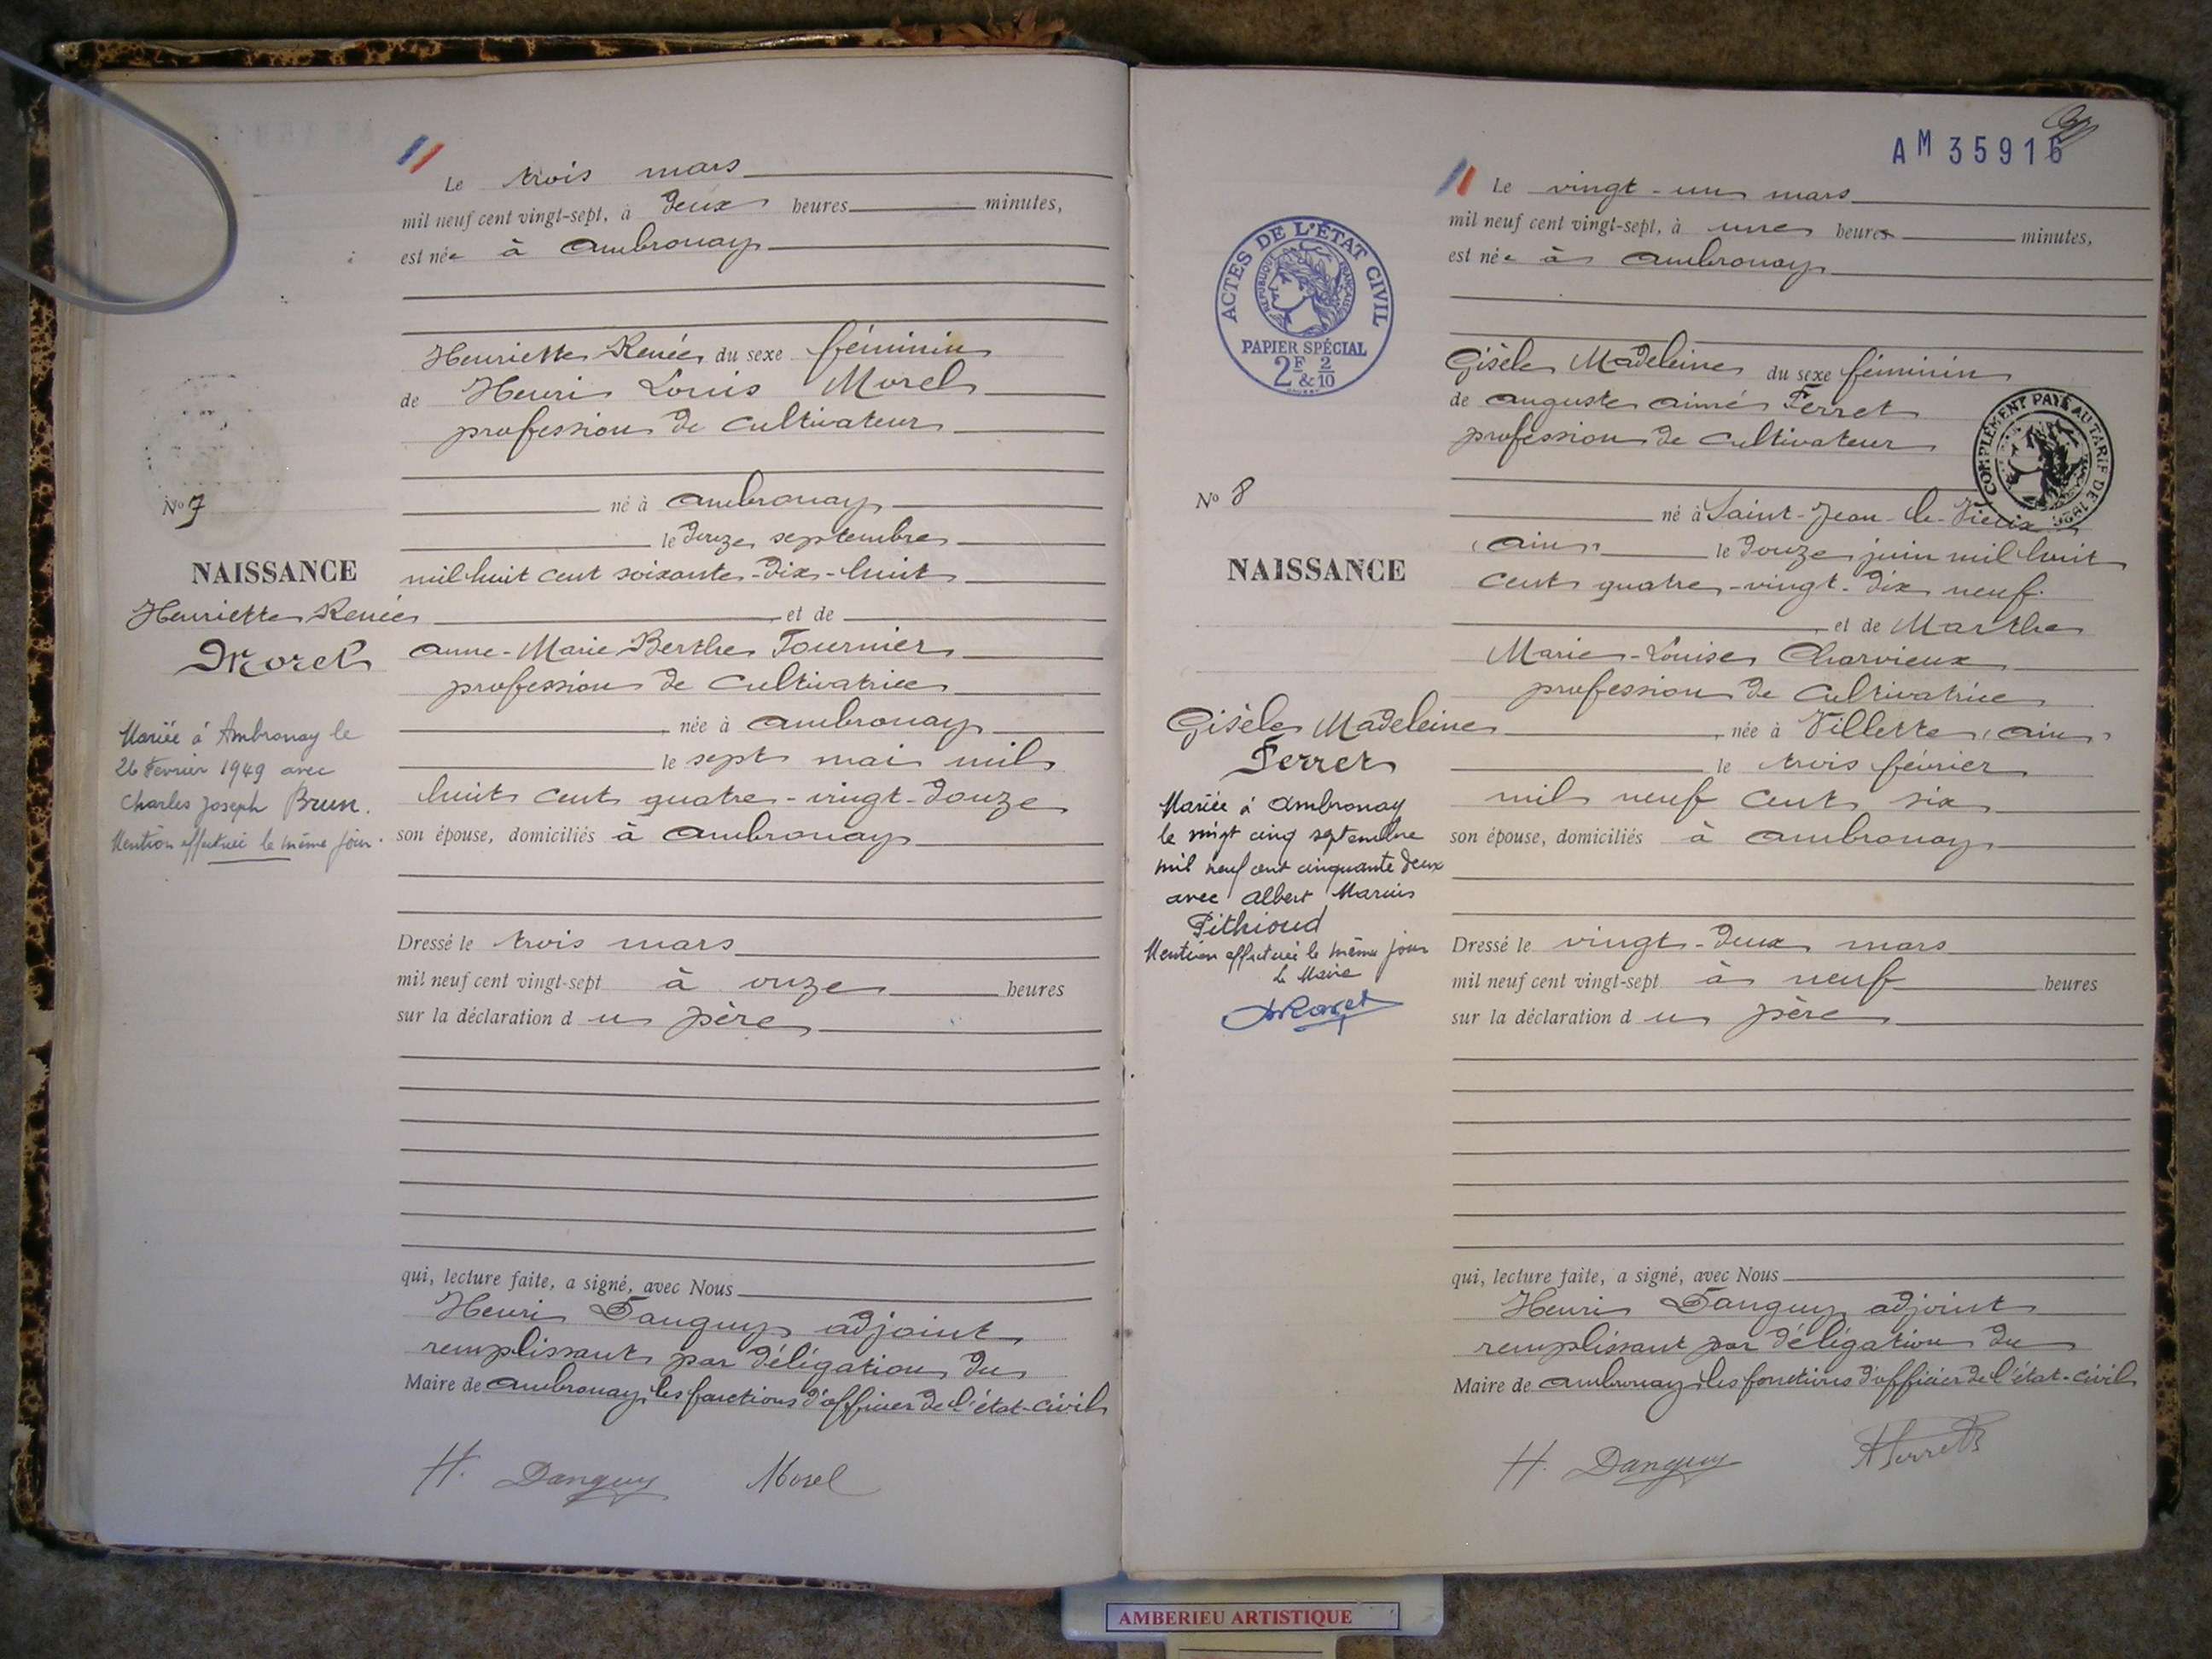 Le trois mars
mil neuf cent vingt-sept, à deux heures minutes,
est née à Ambronay
Henriette Renée du sexe féminin
de Henri Louis Morel
profession de cultivateur
né à Ambronay
le douze septembre
mil huit cent soixante-dix-huit
et de
Anne-Marie Berthe Fournier
profession de cultivatrice
née à Ambronay
le sept mai mil
huit cent quatre-vingt-douze
son épouse, domiciliés à Ambronay
Dressé le trois mars
mil neuf cent vingt-sept à onze heures
sur la déclaration du père
qui, lecture faite, a signé, avec Nous
Henri Danguy adjoint
remplissant par délégation du
Maire de Ambronay, les fonctions d'officier de l'état-civil
H. Danguy Morel
No 7
NAISSANCE
Henriette Renée
Morel
Mariée à Ambronay le
26 Février 1949 avec
Charles Joseph Brun.
Mention effectuée le même jour.
AM 35916
ACTES DE L'ÉTAT CIVIL
RÉPUBLIQUE FRANÇAISE
PAPIER SPÉCIAL
2F & 2/10
No 8
NAISSANCE
Gisèle Madeleine
Ferret
Mariée à Ambronay
le vingt cinq septembre
mil neuf cent cinquante deux
avec Albert Marius
Pithioud
Mention effectuée le même jour
Le Maire
Le vingt-un mars
mil neuf cent vingt-sept, à une heures minutes,
est née à Ambronay
Gisèle Madeleine du sexe féminin
de Auguste Aimé Ferret
profession de cultivateur
COMPLÉMENT PAYÉ AU TARIF DE
né à Saint-Jean-le-Vieux
(Ain) le douze juin mil huit
cent quatre-vingt-dix neuf.
et de Marthe
Marie-Louise Charvieux
profession de cultivatrice
née à Villette (Ain)
le trois février
mil neuf cent six
son épouse, domiciliés à Ambronay
Dressé le vingt-deux mars
mil neuf cent vingt-sept à neuf heures
sur la déclaration du père
qui, lecture faite, a signé, avec Nous
Henri Danguy adjoint
remplissant par délégation du
Maire de Ambronay, les fonctions d'officier de l'état-civil
H. Danguy AFerret
AMBERIEU ARTISTIQUE